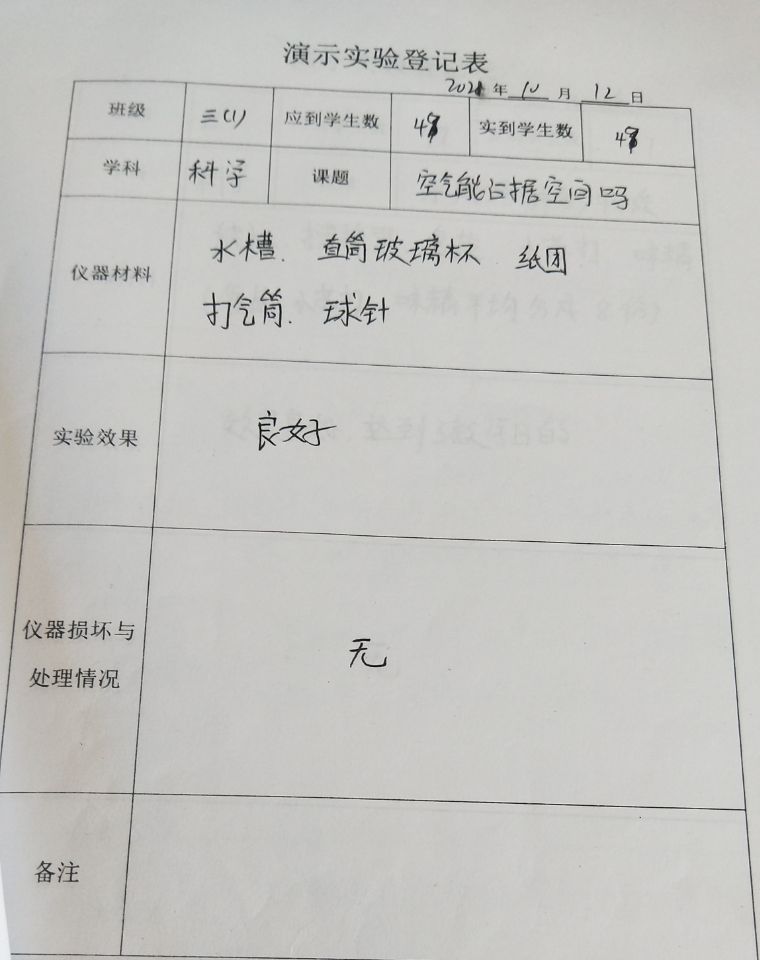 演示实验登记表
2021年10月12日
班级 三(1) 应到学生数 47 实到学生数 47
学科 科学 课题 空气能占据空间吗
仪器材料 水槽. 直筒玻璃杯 纸团
打气筒. 球针
实验效果 良好
仪器损坏与
处理情况 无
备注